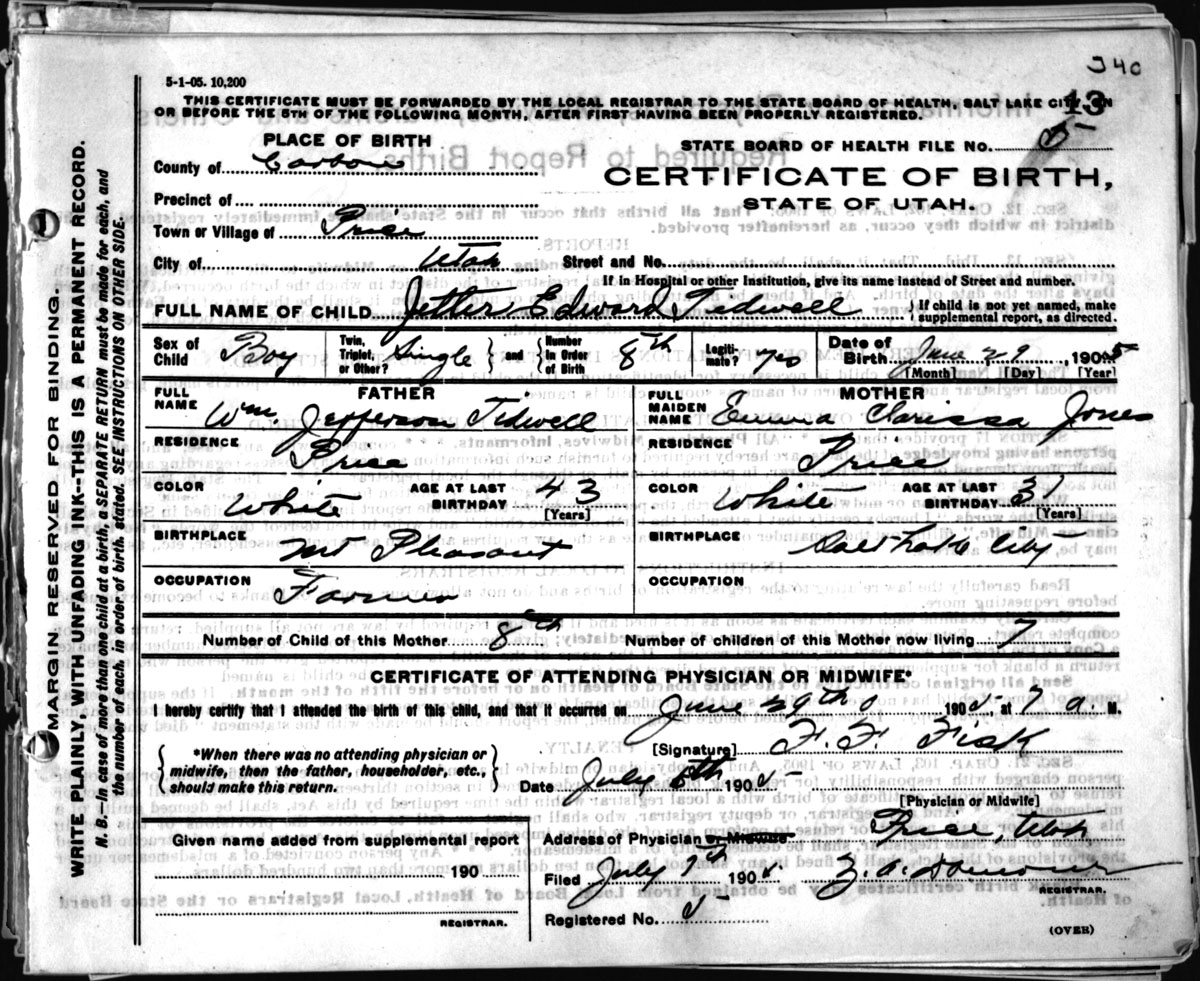 340
5-1-05. 10,200
13
THIS CERTIFICATE MUST BE FORWARDED BY THE LOCAL REGISTRAR TO THE STATE BOARD OF HEALTH, SALT LAKE CITY, ON
OR BEFORE THE 5TH OF THE FOLLOWING MONTH, AFTER FIRST HAVING BEEN PROPERLY REGISTERED.
PLACE OF BIRTH
STATE BOARD OF HEALTH FILE NO. 5
County of Carbon
CERTIFICATE OF BIRTH,
STATE OF UTAH.
Precinct of
Town or Village of Price
City of Utah Street and No.
If in Hospital or other Institution, give its name instead of Street and number.
FULL NAME OF CHILD Jetter Edward Tidwell { If child is not yet named, make supplemental report, as directed.
Sex of Child Boy Twin, Triplet, or Other? Single } and { Number In Order of Birth 8th Legiti- mate? yes Date of Birth June 29 1905
[Month] [Day] [Year]
FATHER MOTHER
FULL NAME Wm Jefferson Tidwell FULL MAIDEN NAME Emma Clarissa Jones
RESIDENCE Price RESIDENCE Price
COLOR White AGE AT LAST BIRTHDAY 43 [Years] COLOR White AGE AT LAST BIRTHDAY 31 [Years]
BIRTHPLACE Mt Pleasant BIRTHPLACE Salt Lake City
OCCUPATION Farmer OCCUPATION
Number of Child of this Mother 8th Number of children of this Mother now living 7
CERTIFICATE OF ATTENDING PHYSICIAN OR MIDWIFE*
I hereby certify that I attended the birth of this child, and that it occurred on June 29th 1905 at 7 a. M.
*When there was no attending physician or midwife, then the father, householder, etc., should make this return.
[Signature] F. F. Fisk
Date July 6th 1905
[Physician or Midwife]
Given name added from supplemental report
190
REGISTRAR.
Address of Physician or Midwife Price, Utah
Filed July 7th 1905
REGISTRAR.
Registered No. 5
(OVER)
MARGIN RESERVED FOR BINDING.
WRITE PLAINLY, WITH UNFADING INK--THIS IS A PERMANENT RECORD.
N. B.—In case of more than one child at a birth, a SEPARATE RETURN must be made for each, and
the number of each, in order of birth, stated. SEE INSTRUCTIONS ON OTHER SIDE.